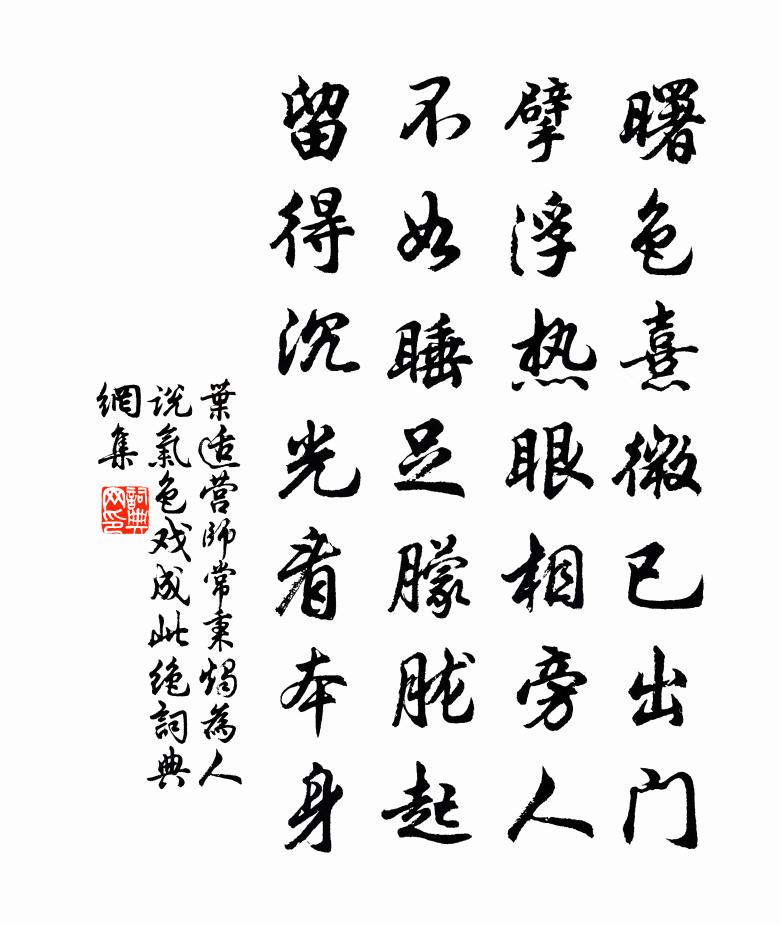 曙色熹微已出门
擘浮热眼相旁人
不如睡足朦胧起
留得沉光看本身
葉适营師常秉燭為人
说氣色戏成此绝詞典
網集
詞典网印